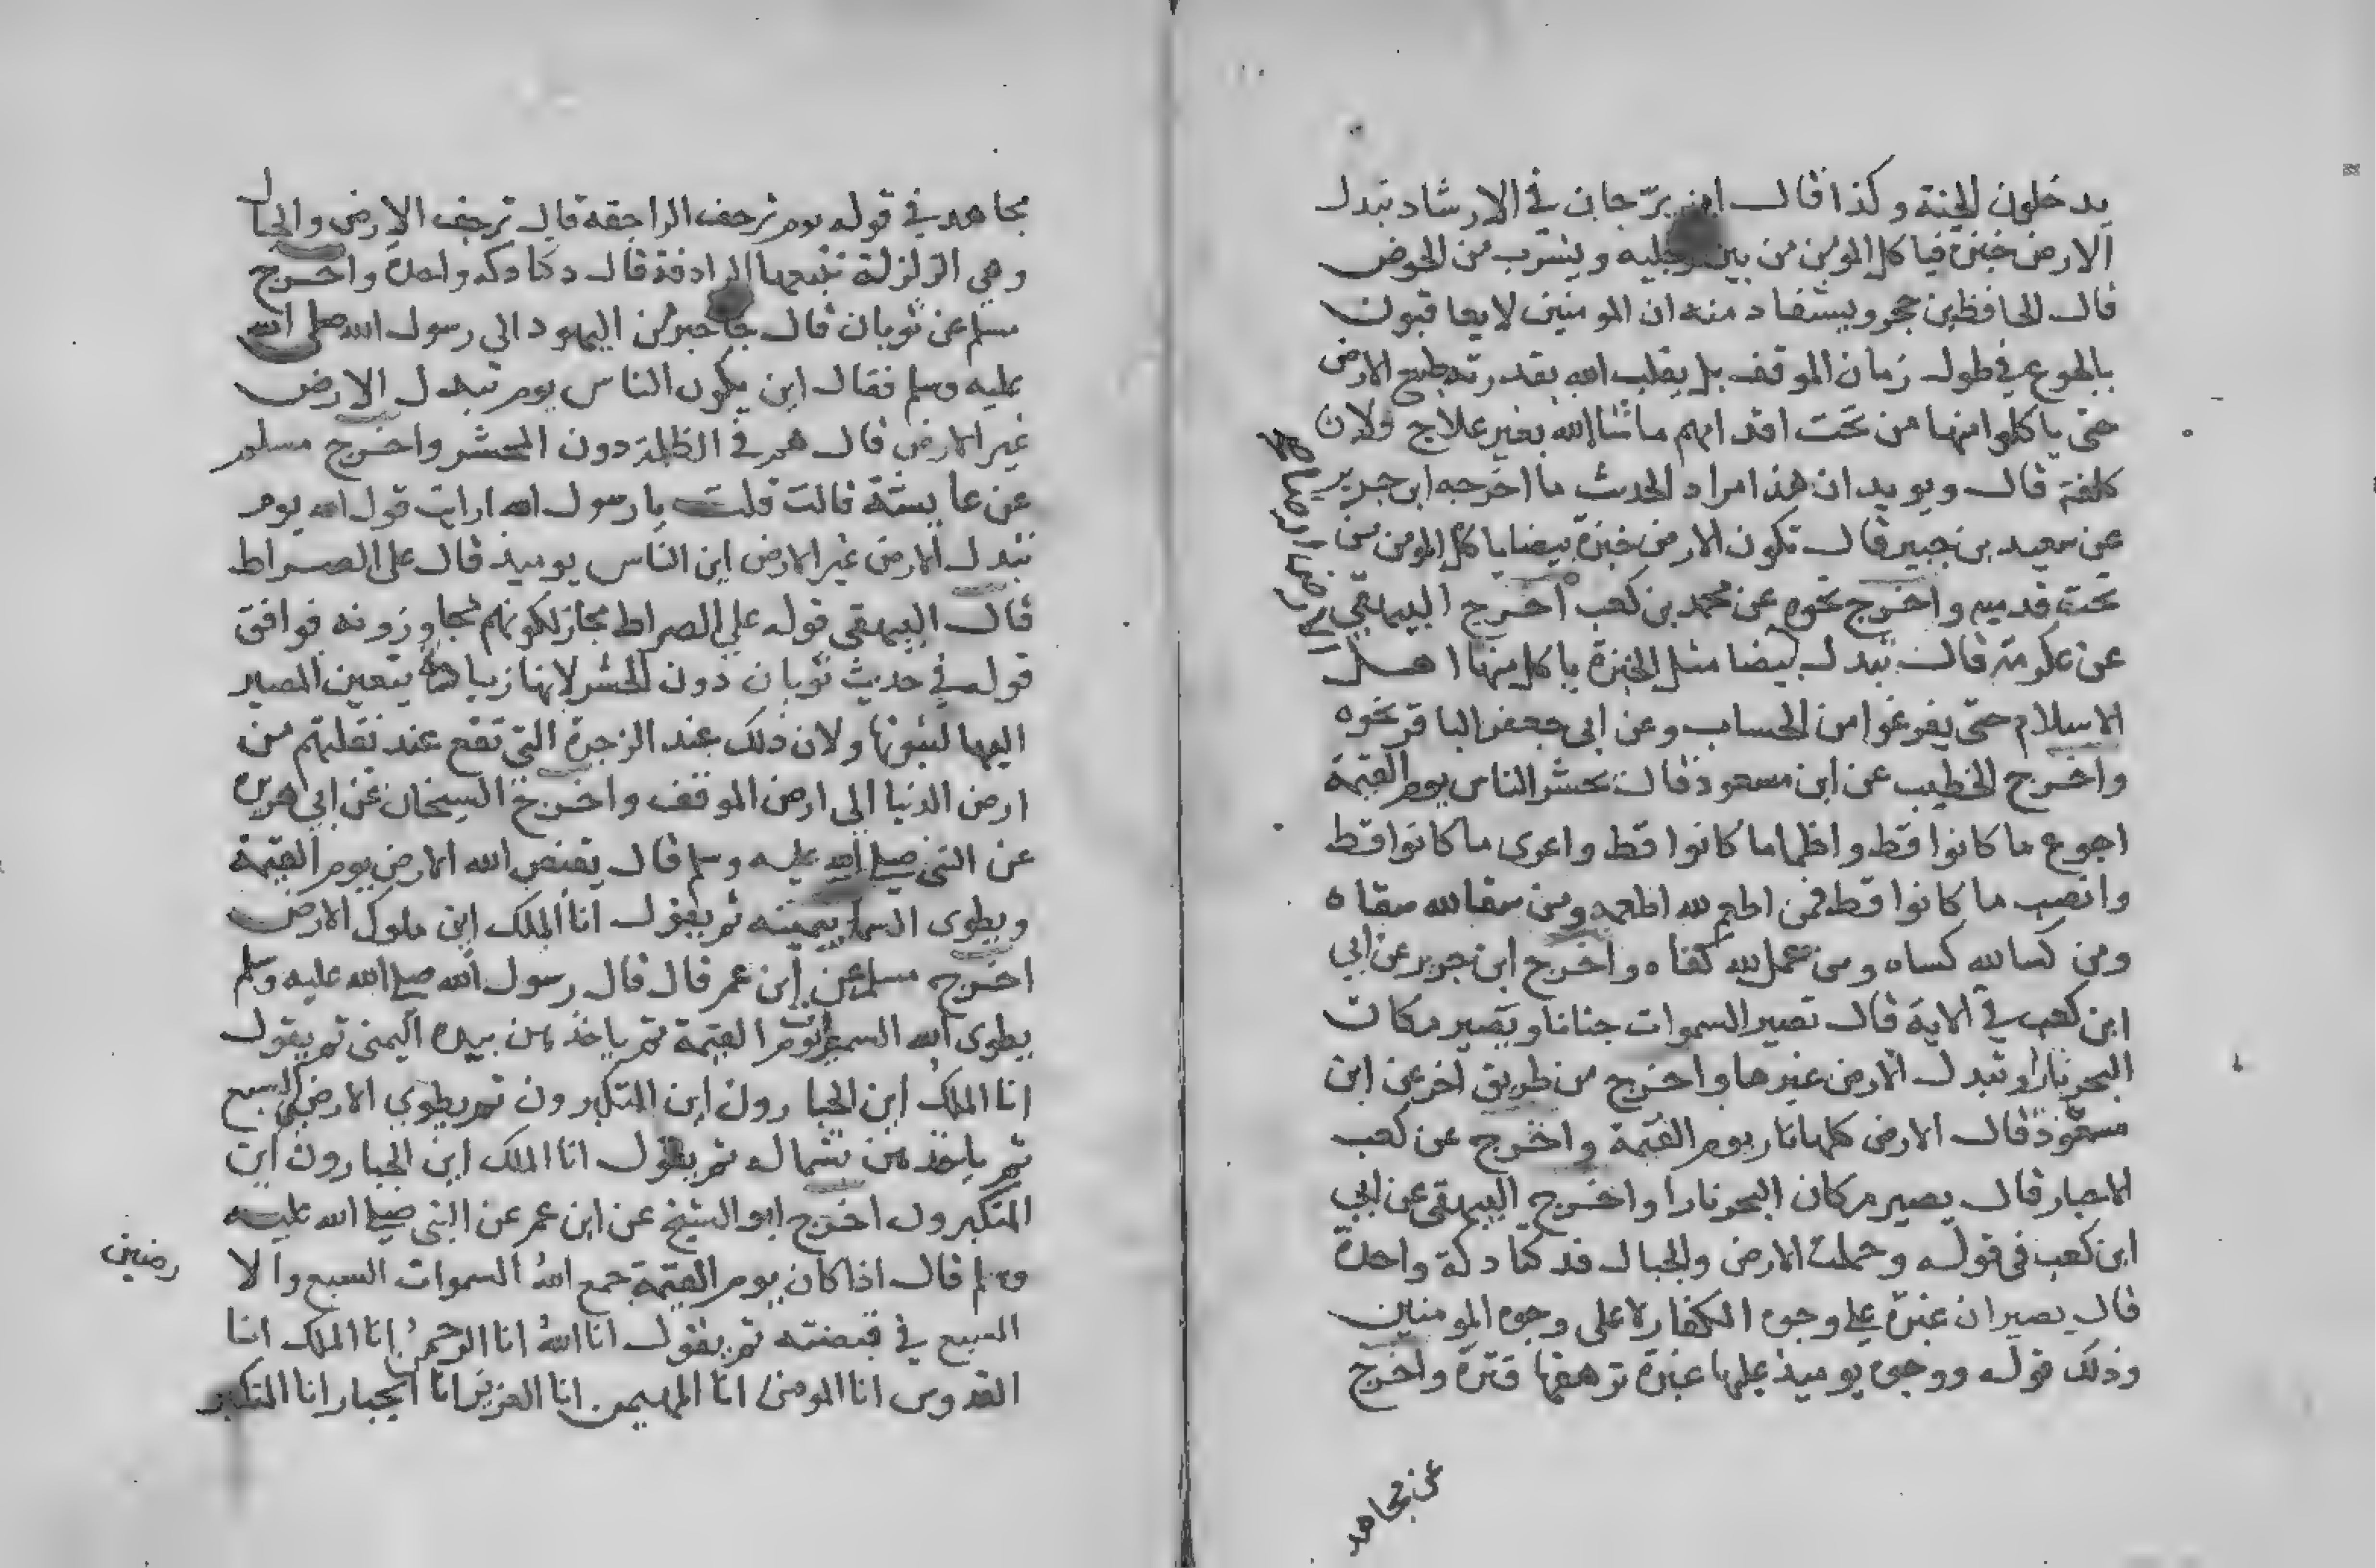 يدخلون الجنة وكذا قال ابن برّجان في الارشاد تبدل
الارض خبزة فياكل المومن من بين رجليه ويشرب من الحوض
قال الحافظ بن حجر ويستفاد منه ان المومنين لا يعاقبون
بالجوع في طول زمان الموقف بل يقلب الله بقدرته طبع الارض
حتى ياكلوا منها من تحت اقدامهم ماشاالله بغير علاج ولا
كلفة قال ويويد ان هذا مراد الحديث ما اخرجه ابن جرير
عن سعيد بن جبير قال تكون الارض خبزة بيضا ياكل المومن من
تحت قدميه واخرج نحوه عن محمد بن كعب اخرج البيهقي
عن عكرمة قال تبدل بيضا مثل الخبزة ياكل منها اهل
الاسلام حتى يفرغوا من الحساب وعن ابى جعفر الباقر نحوه
واخرج الخطيب عن ابن مسعود قال تحشر الناس يوم القيمة
اجوع ما كانوا قط واظما ما كانوا قط واعرى ما كانوا قط
وانصب ما كانوا قط فمن اطعم لله اطعمه ومن سقا لله سقاه
ومن كسا لله كساه ومن عمل لله كفاه واخرج ابن جرير عن ابي
ابن كعب في الاية قال تصير السموات جنانا ويصير مكان
البحر نارا وتبدل الارض غيرها واخرج من طريق اخر عن ابن
مسعود قال الارض كلها نار يوم القيمة واخرج عن كعب
الاحبار قال يصير مكان البحر نارا واخرج البيهقي عن ابي
ابن كعب في قوله وحملت الارض والجبال فدكتا دكة واحدة
قال يصيران غبرة على وجوه الكفار لا على وجوه المومنين
وذلك قوله ووجوه يوميذ عليها غبرة ترهقها قترة واخرج
عن مجاهد
مجاهد في قوله يوم ترجف الراجفة قال ترجف الارض والجبال
وهي الزلزلة تتبعها الرادفة قال دكا دكه واحدة واخرج
مسلم عن ثوبان قال جا حبر من اليهود الي رسول الله صلى الله
عليه وسلم فقال اين يكون الناس يوم تبدل الارض
غير الارض قال هم في الظلمة دون المحشر واخرج مسلم
عن عايشة قالت قلت يا رسول الله ارايت قول الله يوم
تبدل الارض غير الارض اين الناس يوميذ قال على الصراط
قال البيهقي قوله علي الصراط مجاز لكونهم يجاوزونه فوافق
قوله في حديث ثوبان دون المحشر لانها زيادة يتعين المصير
اليها لثبوتها ولان ذلك عند الزجرة التي تقع عند نقلتهم من
ارض الدنيا الى ارض الموقف واخرج الشيخان عن ابي هريره
عن النبي صلى الله عليه وسلم قال يقبض الله الارض يوم القيمة
ويطوى السما بيمينه ثم يقول انا الملك اين ملوك الارض
اخرج مسلم عن ابن عمر قال قال رسول الله صلى الله عليه وسلم
يطوى الله السموات يوم القيمة ثم ياخذهن بيده اليمنى ثم يقول
انا الملك اين الجبارون اين المتكبرون ثم يطوي الارض السبع
ثم ياخذهن بشماله ثم يقول انا الملك اين الجبارون اين
المتكبرون اخرج ابو الشيخ عن ابن عمر عن النبي صلى الله عليه
وسلم قال اذا كان يوم القيمة جمع الله السموات السبع والا
رضين
السبع في قبضته ثم يقول انا الله انا الرحمن انا الملك انا
القدوس انا المومن انا المهيمن انا العزيز انا الجبار انا المتكبر